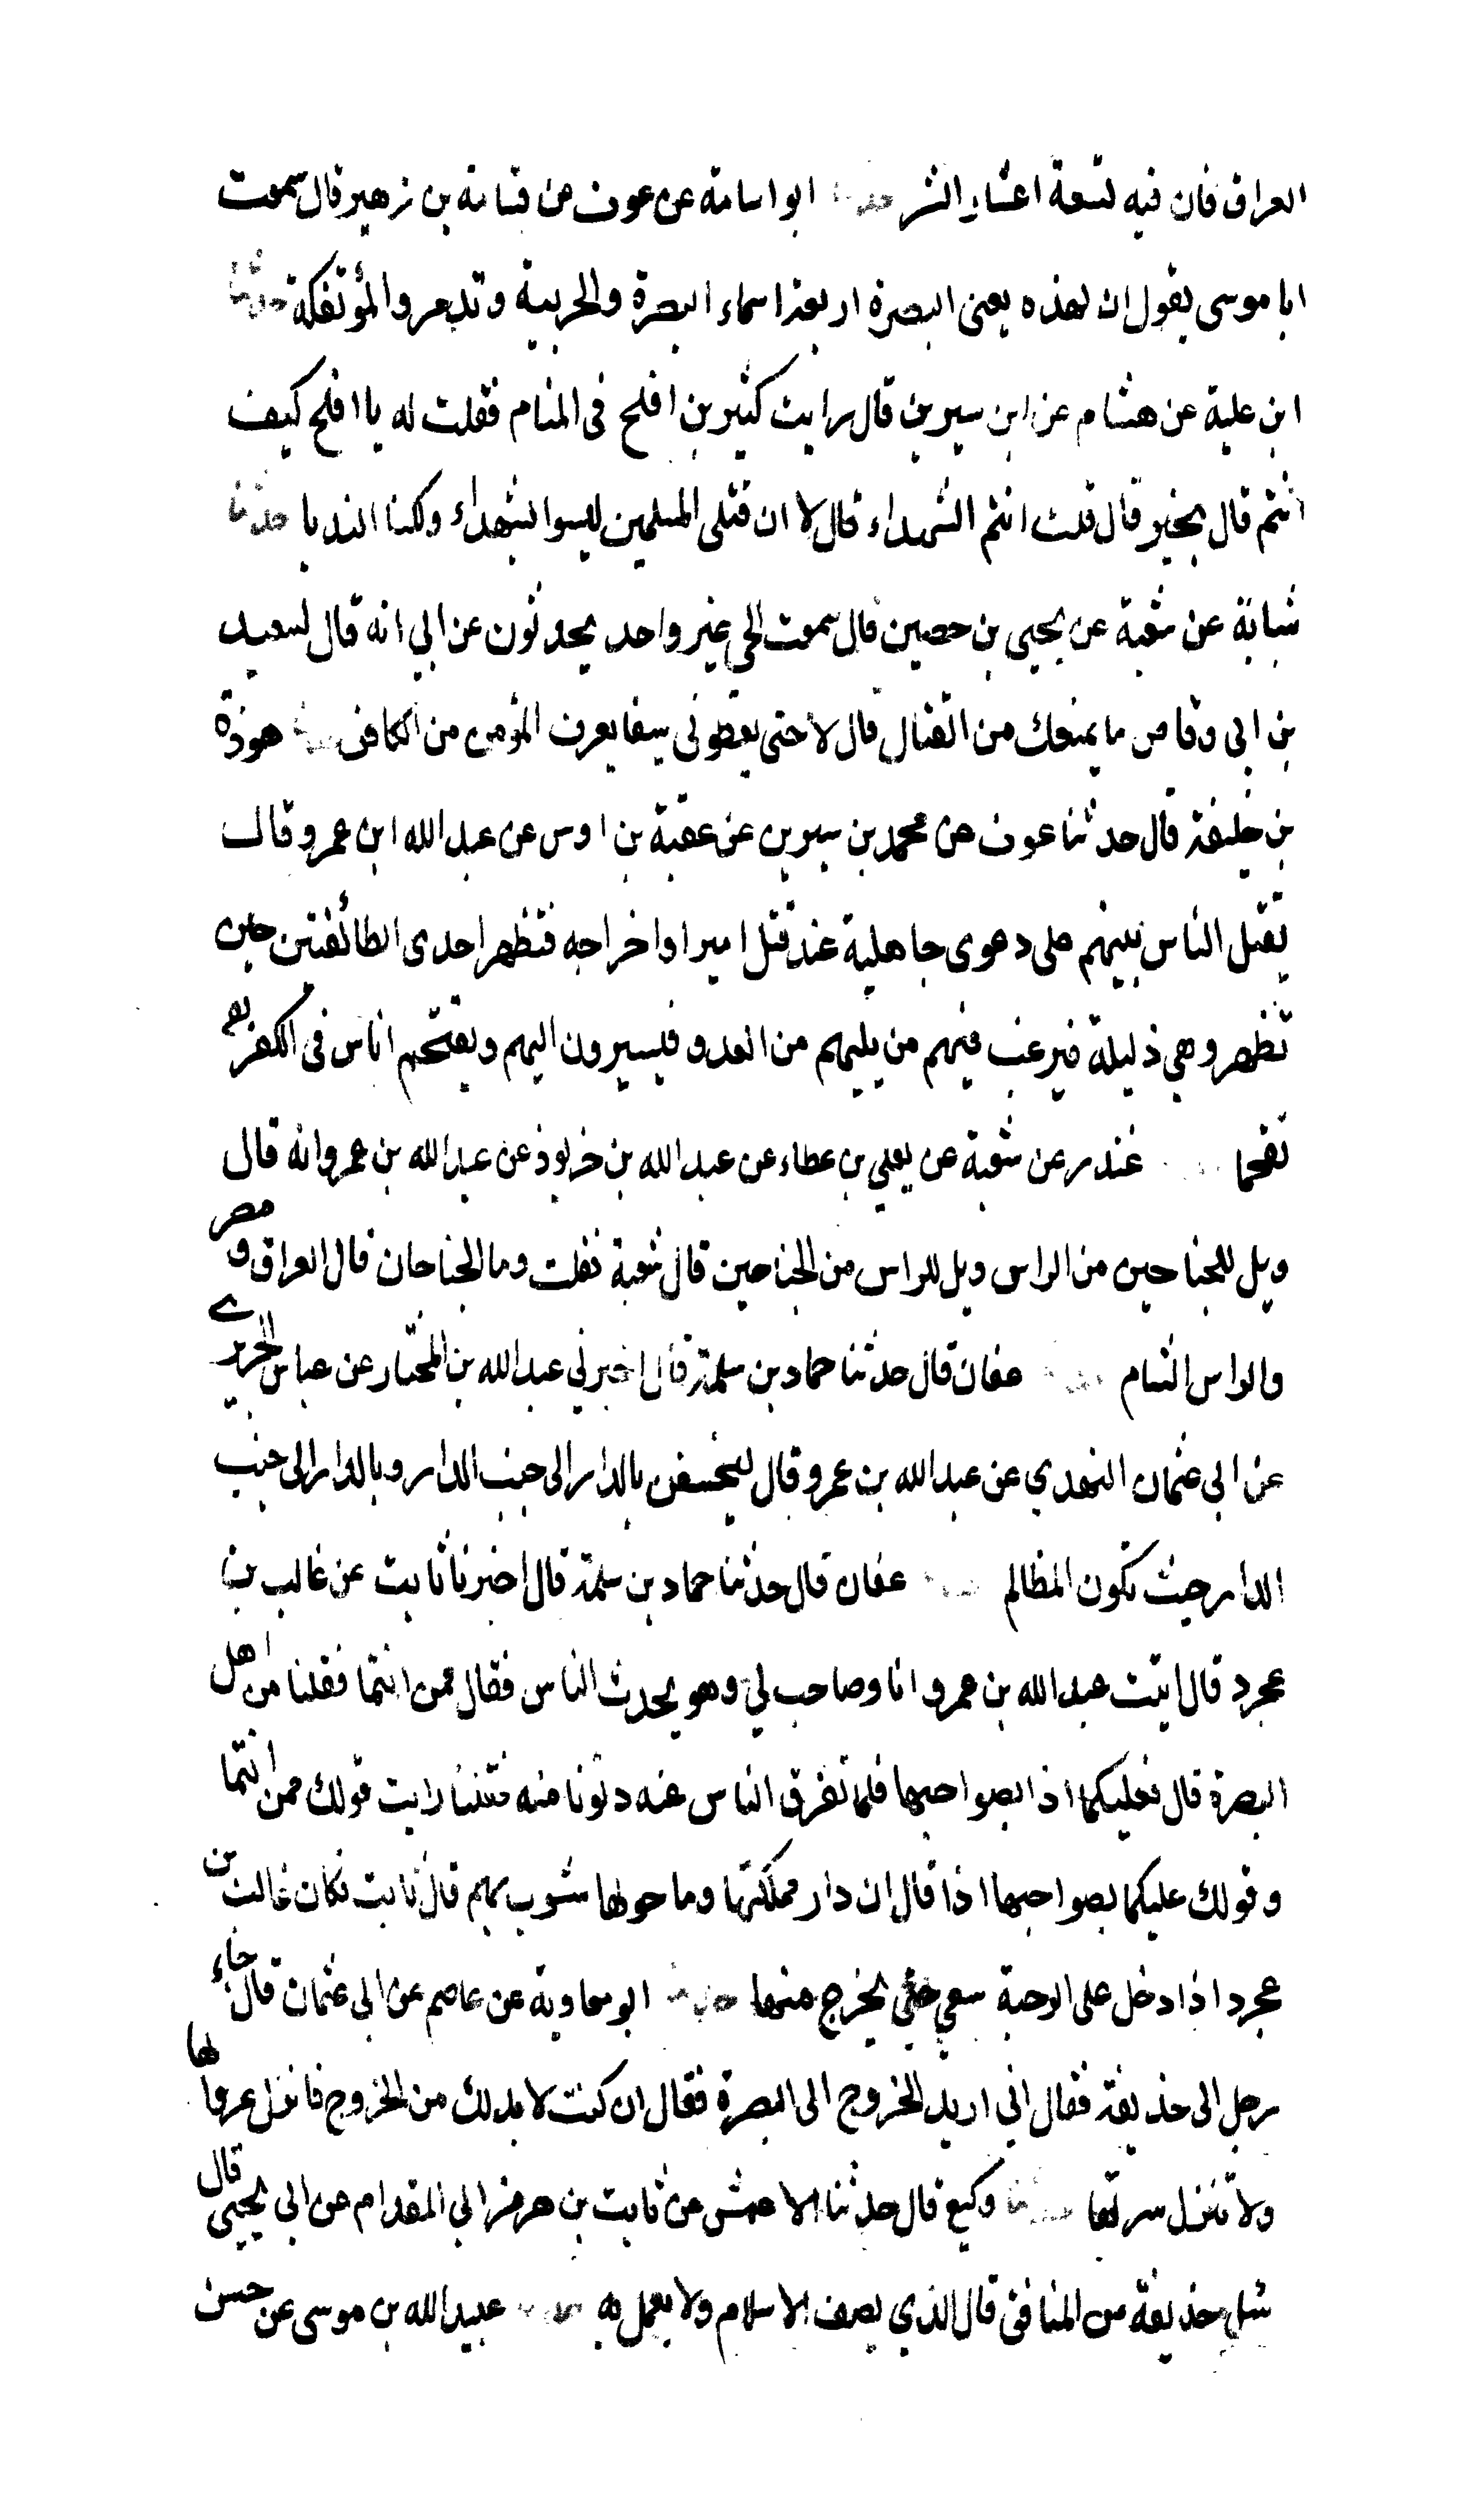 العراق فان فيه تسعة اعشار الشر حدثنا ابو اسامة عن عوف عن قسامة بن زهير قال سمعت
ابا موسى يقول ان لهذه يعنى البصرة اربعة اسماء البصرة والخريبة وتدمر والمؤتفكة حدثنا
ابن علية عن هشام عن ابن سيرين قال رايت كثير بن افلح فى المنام فقلت له يا افلح كيف
انتم قال بخير قال قلت انتم الشهداء قال لا ان قتلى المسلمين ليسوا بشهداء ولكنا الندبا حدثنا
شبابة عن شعبة عن يحيى بن حصين قال سمعت الحي غير واحد يحدثون عن ابي انه قال لسعيد
بن ابى وقاص ما يمنعك من القتال قال لا حتى يعطونى سيفا يعرف المؤمن من الكافر حدثنا هوذة
بن خليفة قال حدثنا عوف عن محمد بن سيرين عن عقبة بن اوس عن عبد الله ابن عمرو قال
تقتل الناس بينهم على دعوى جاهلية عند قتل امير او اخراجه فتظهر احدى الطائفتين حين
تظهر وهي ذليلة فيرغب فيهم من يليهم من العدو فيسيرون اليهم ويقتحم اناس فى الكفر
تقحما غندر عن شعبة عن يعلي بن عطاء عن عبد الله بن خربوذ عن عبد الله بن عمرو انه قال
ويل للجناحين من الراس ويل للراس من الجناحين قال شعبة فقلت وما الجناحان قال العراق و مصر
والراس الشام حدثنا عفان قال حدثنا حماد بن سلمة قال اخبرني عبد الله بن المختار عن عباس الجريرى
عن ابى عثمان النهدي عن عبد الله بن عمرو قال ليخسفن بالدار الى جنب الدار وبالدار الى جنب
الدار حيث تكون المظالم حدثنا عفان قال حدثنا حماد بن سلمة قال اخبرنا ثابت عن غالب بن
عجرد قال اتيت عبد الله بن عمرو انا وصاحب لي وهو يحدث الناس فقال ممن انتما فقلنا من اهل
البصرة قال فعليكما اذا بصواحبها فلما تفرق الناس عنه دنونا منه فقلنا رايت قولك ممن انتما
وقولك عليكما بصواحبها اذا قال ان دار مملكتها وما حولها مشوب بهم قال ثابت فكان غالب بن
عجرد اذا دخل على الرحبة سعي حتى يخرج منها حدثنا ابو معاوية عن عاصم عن ابى عثمان قال جاء
رجل الى حذيفة فقال انى اريد الخروج الى البصرة فقال ان كنت لا بد لك من الخروج فانزل عرواتها
ولا تنزل سرتها حدثنا وكيع قال حدثنا الاعمش عن ثابت بن هرمز ابي المقدام عن ابى يحيى قال
سئل حذيفة من المنافق قال الذي يصف الاسلام ولا يعمل به حدثنا عبيد الله بن موسى عن حسن